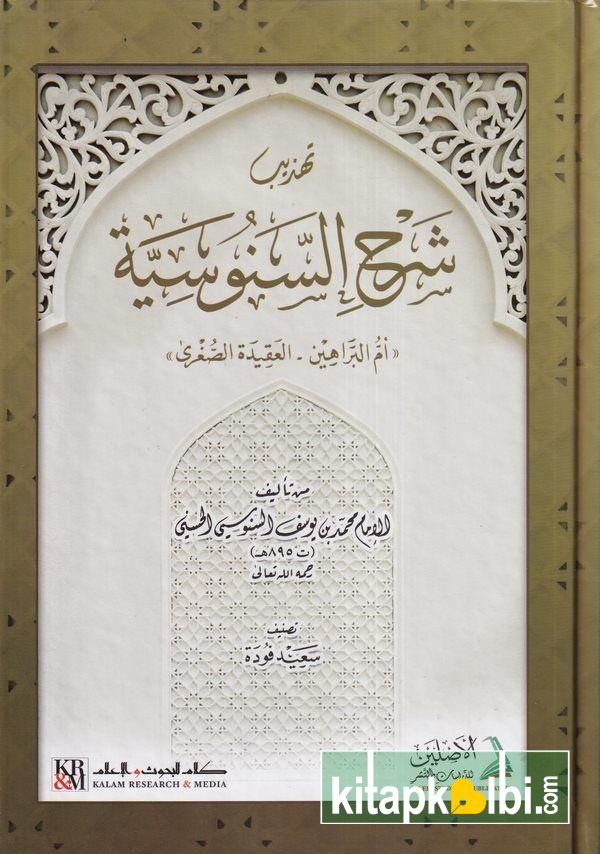 تهذيب
شَرْحِ السَّنُوسِيَّة
«أمُّ البَرَاهِين - العَقِيدَة الصُّغْرىٰ»
من تأليف
الإمام محمد بن يوسف السنوسي الحسني
(ت ٨٩٥هـ)
رحمه الله تعالى
تصنيف
سَعِيْد فُودَة
KR&M
كلام للبحوث والإعلام
KALAM RESEARCH & MEDIA
الأصلين
للدراسات والنشر
kitapkalbi.com